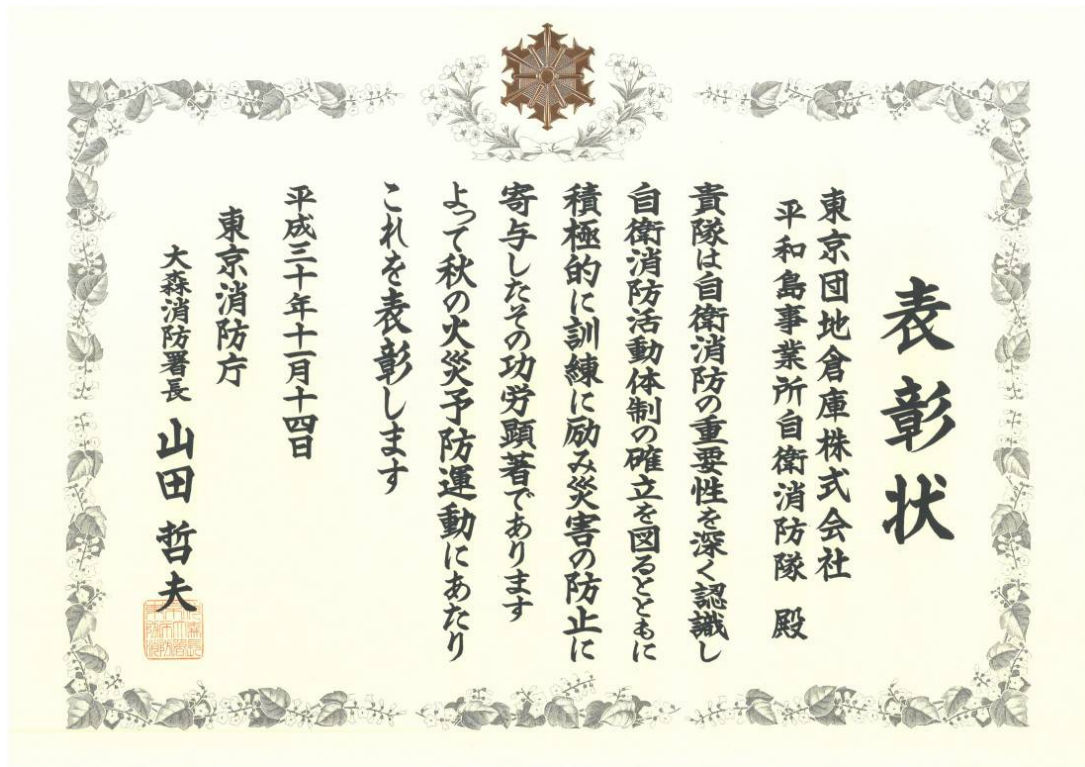 表彰状
東京団地倉庫株式会社
平和島事業所自衛消防隊 殿
貴隊は自衛消防の重要性を深く認識し
自衛消防活動体制の確立を図るとともに
積極的に訓練に励み災害の防止に
寄与したその功労顕著であります
よって秋の火災予防運動にあたり
これを表彰します
平成三十年十一月十四日
東京消防庁
大森消防署長 山田 哲夫